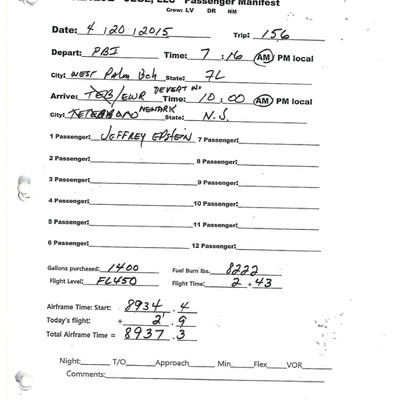 JEGE, LLC Passenger Manifest
Crew: LV DR NM
Date: 4 | 20 | 2015 Trip: 156
Depart: PBI Time: 7:16 AM / PM local
City: West Palm Bch State: FL
DEVERT
Arrive: TEB/EWR Time: 10:00 AM / PM local
NEWARK
City: TETERBORO State: N.J.
1 Passenger: JEFFREY EPSTEIN 7 Passenger:
2 Passenger: 8 Passenger:
3 Passenger: 9 Passenger:
4 Passenger: 10 Passenger:
5 Passenger: 11 Passenger:
6 Passenger: 12 Passenger:
Gallons purchased: 1400 Fuel Burn lbs. 8222
Flight Level: FL450 Flight Time: 2 + 43
Airframe Time: Start: 8934 . 4
Today's flight: + 2 . 9
Total Airframe Time = 8937 . 3
Night: T/O Approach Min Flex VOR
Comments: